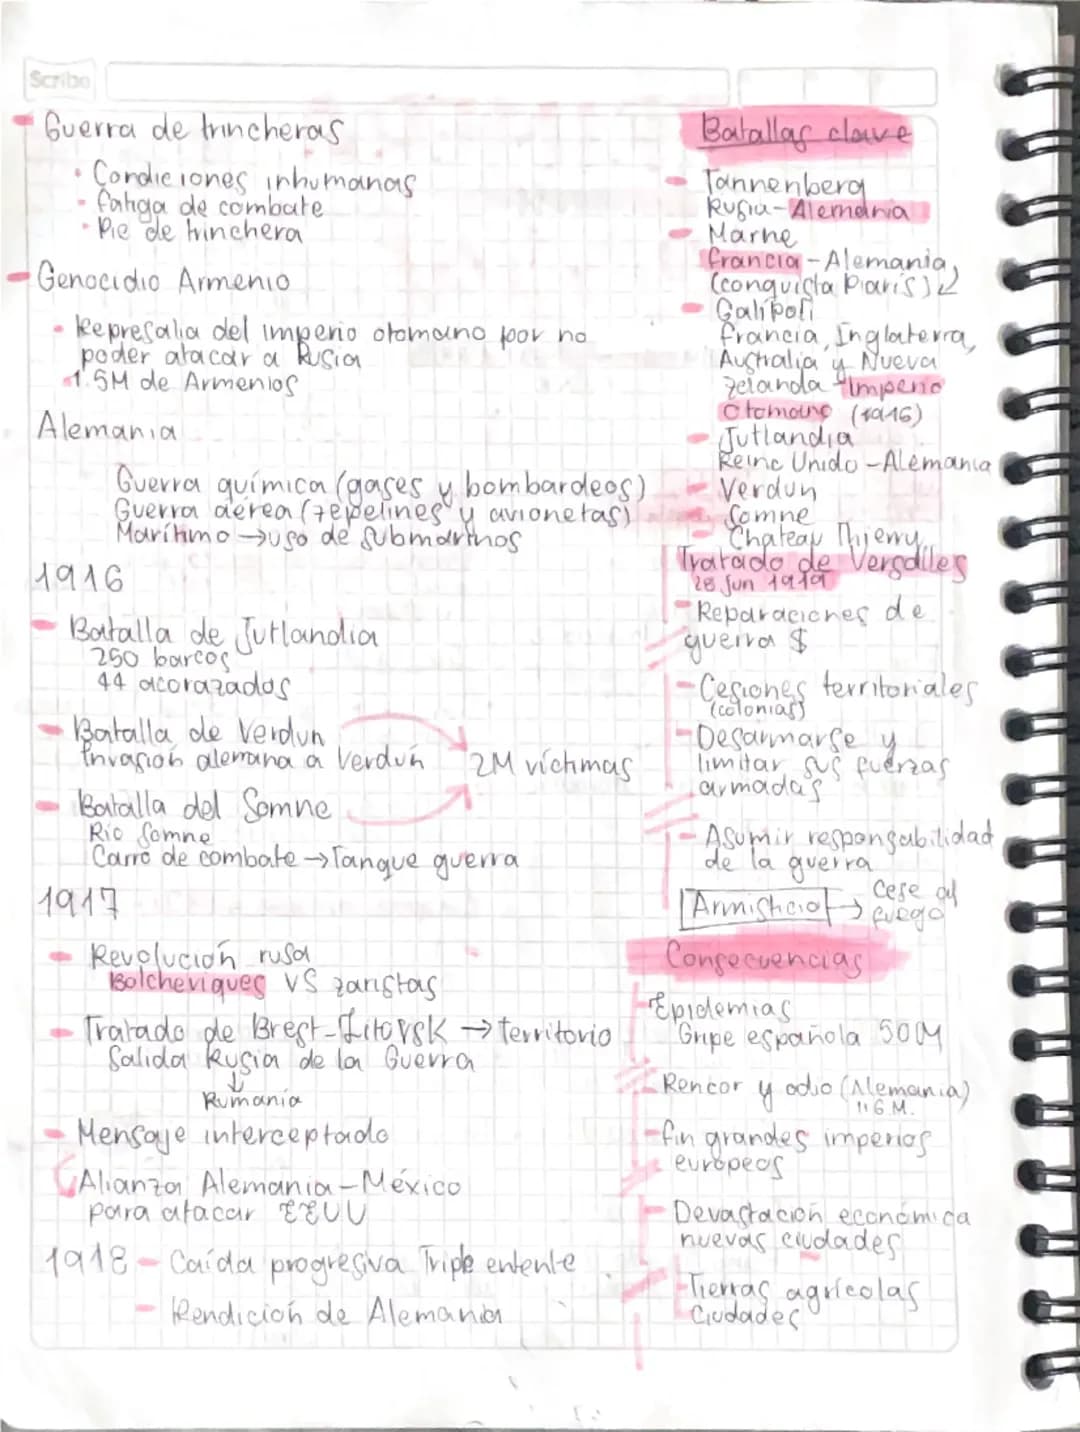 Scribe
Guerra de trincheras
Condiciones inhumanas
fatiga de combate
Pie de trinchera
Genocidio Armenio
Represalia del imperio otomano por no
poder atacar a Rusia
1.5M de Armenios
Alemania
Guerra química (gases y bombardeos)
Guerra aérea (zepelines y avionetas)
Marítimo → uso de submarinos
1916
Batalla de Jutlandia
250 barcos
44 acorazados
Batalla de Verdun
Invasión alemana a Verdún
2M víctimas
Batalla del Somne
Río Somne
Carro de combate → Tanque guerra
1917
Revolución rusa
Bolcheviques VS zaristas
Tratado de Brest-Litovsk → territorio
Salida Rusia de la Guerra
↓
Rumania
Mensaje interceptado
Alianza Alemania-México
para atacar EEUU
1918 - Caída progresiva Triple entente
- Rendición de Alemania
Batallas clave
- Tannenberg
Rusia-Alemania
- Marne
francia-Alemania,
(conquista París)
- Galípoli
francia, Inglaterra,
Australia y Nueva
zelanda-Imperio
Otomano (1916)
- Jutlandia
Reino Unido-Alemania
- Verdun
- Somne
- Chateau Thierry
Tratado de Versalles
28 Jun 1919
- Reparaciones de
guerra $
- Cesiones territoriales
(colonias)
- Desarmarse y
limitar sus fuerzas
armadas
- Asumir responsabilidad
de la guerra
Armisticio → Cese al
fuego
Consecuencias
- Epidemias
Gripe española 50M
- Rencor y odio (Alemania)
- fin grandes imperios
europeos
- Devastación económica
nuevas ciudades
- Tierras agrícolas
Ciudades